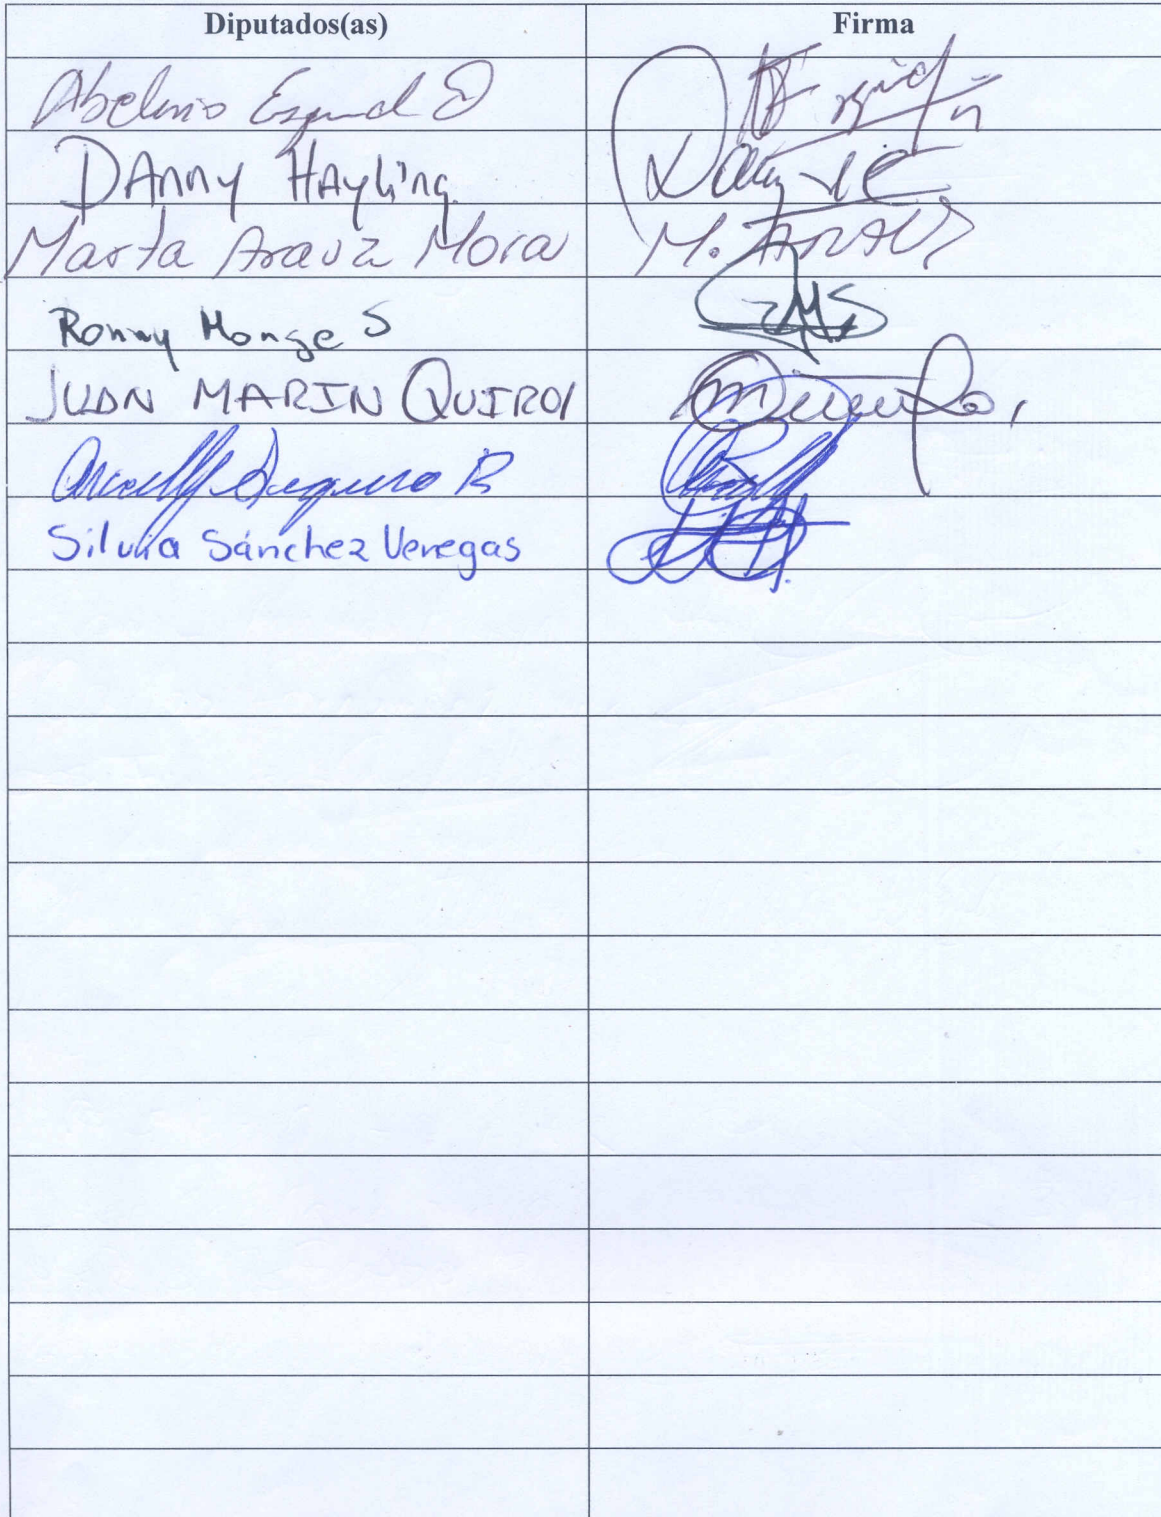 Diputados(as) Firma
Abelino Esquivel Q
DAnny HAyling
Marta Arauz Mora M. ARAUZ
Ronny Monge S
JUAN MARIN QUIROS
Aracelly Segura R
Silvia Sánchez Venegas